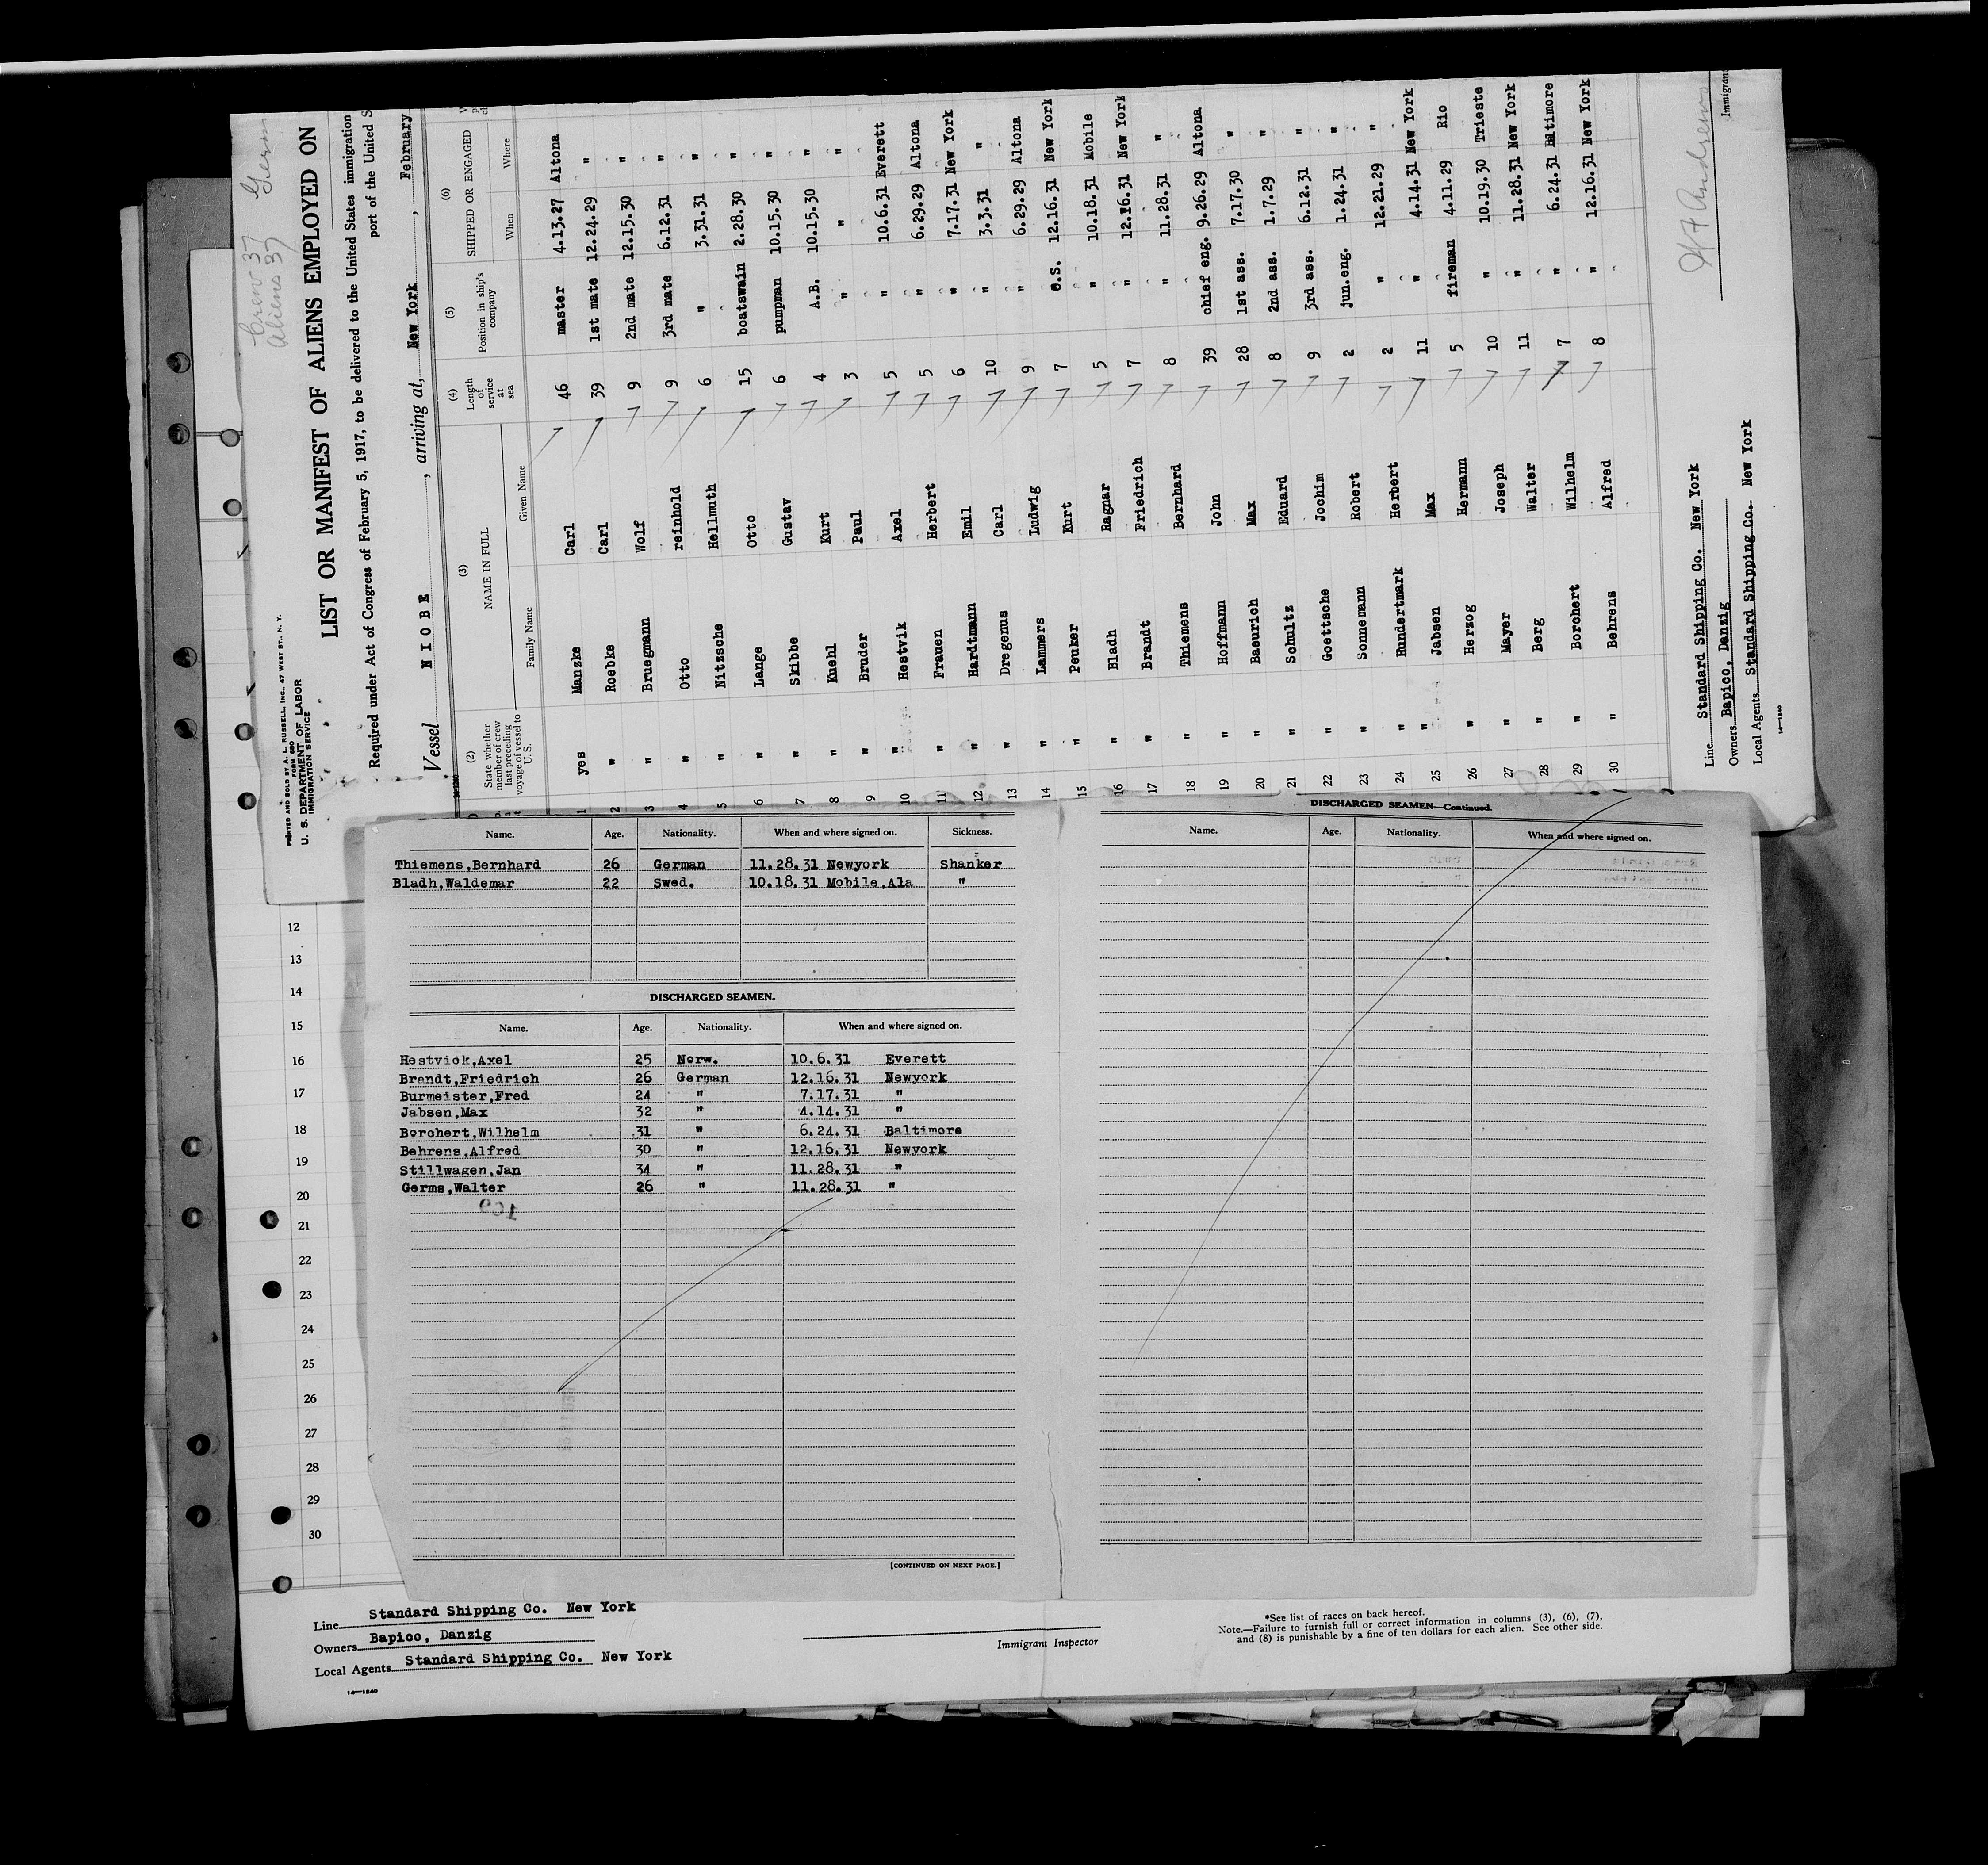 Crew 37
Aliens 37
PRINTED AND SOLD BY A. L. RUSSELL, INC., 47 WEST ST., N. Y.
FORM 680
U. S. DEPARTMENT OF LABOR
IMMIGRATION SERVICE
LIST OR MANIFEST OF ALIENS EMPLOYED ON
Required under Act of Congress of February 5, 1917, to be delivered to the United States immigration
port of the United S
Vessel NIOBE, arriving at, New York, February
(2) (3) (4) (5) (6)
State whether member of crew last preceding voyage of vessel to U.S. NAME IN FULL Length of service at sea Position in ship's company SHIPPED OR ENGAGED
Family Name Given Name When Where
1 yes Manzke Carl 46 master 4.13.27 Altona
2 " Roebke Carl 39 1st mate 12.24.29 "
3 " Bruegmann Wolf 9 2nd mate 12.15.30 "
4 " Otto reinhold 9 3rd mate 6.12.31 "
5 " Nitzsche Hellmuth 6 " 3.31.31 "
6 " Lange Otto 15 boatswain 2.28.30 "
7 " Skibbe Gustav 6 pumpman 10.15.30 "
8 " Kuehl Kurt 4 A.B. 10.15.30 "
9 " Bruder Paul 3 " " "
10 " Hestvik Axel 5 " 10.6.31 Everett
11 " Frauen Herbert 5 " 6.29.29 Altona
12 " Hardtmann Emil 6 " 7.17.31 New York
13 " Dregenus Carl 10 " 3.3.31 "
14 " Lammers Ludwig 9 " 6.29.29 Altona
15 " Peuker Kurt 7 O.S. 12.16.31 New York
16 " Bladh Ragnar 5 " 10.18.31 Mobile
17 " Brandt Friedrich 7 " 12.16.31 New York
18 " Thiemens Bernhard 8 " 11.28.31 "
19 " Hoffmann John 39 chief eng. 9.26.29 Altona
20 " Baeurich Max 28 1st ass. 7.17.30 "
21 " Schultz Eduard 8 2nd ass. 1.7.29 "
22 " Goettsche Jochim 9 3rd ass. 6.12.31 "
23 " Sonnemann Robert 2 jun.eng. 1.24.31 "
24 " Hundertmark Herbert 2 " 12.21.29 "
25 " Jabsen Max 11 " 4.14.31 New York
26 " Herzog Hermann 5 fireman 4.11.29 Rio
27 " Mayer Joseph 10 " 10.19.30 Trieste
28 " Berg Walter 11 " 11.28.31 New York
29 " Borchert Wilhelm 7 " 6.24.31 Baltimore
30 " Behrens Alfred 8 " 12.16.31 New York
Line Standard Shipping Co. New York
Owners Bapico, Danzig
Local Agents Standard Shipping Co. New York
14—1240
Name. Age. Nationality. When and where signed on. Sickness.
Thiemens,Bernhard 26 German 11.28.31 Newyork Shanker
Bladh,Waldemar 22 Swed. 10.18.31 Mobile,Ala "
DISCHARGED SEAMEN.
Name. Age. Nationality. When and where signed on.
Hestvick,Axel 25 Norw. 10.6.31 Everett
Brandt,Friedrich 26 German 12.16.31 Newyork
Burmeister,Fred 24 " 7.17.31 "
Jabsen,Max 32 " 4.14.31 "
Borchert,Wilhelm 31 " 6.24.31 Baltimore
Behrens,Alfred 30 " 12.16.31 Newyork
Stillwagen,Jan 34 " 11.28.31 "
Germs,Walter 26 " 11.28.31 "
[CONTINUED ON NEXT PAGE.]
DISCHARGED SEAMEN—Continued.
Name. Age. Nationality. When and where signed on.
12
13
14
15
16
17
18
19
20
21
22
23
24
25
26
27
28
29
30
Line Standard Shipping Co. New York
Owners Bapico, Danzig
Local Agents Standard Shipping Co. New York
14—1240
Immigrant Inspector
*See list of races on back hereof.
Note.—Failure to furnish full or correct information in columns (3), (6), (7),
and (8) is punishable by a fine of ten dollars for each alien. See other side.